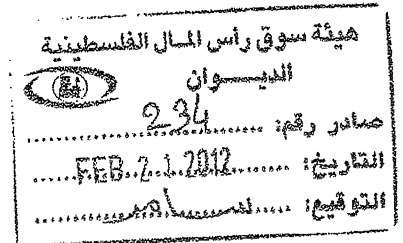 هيئة سوق رأس المال الفلسطينية
الديـــوان
صادر رقم: 234
التاريخ: FEB 21 2012
التوقيع: